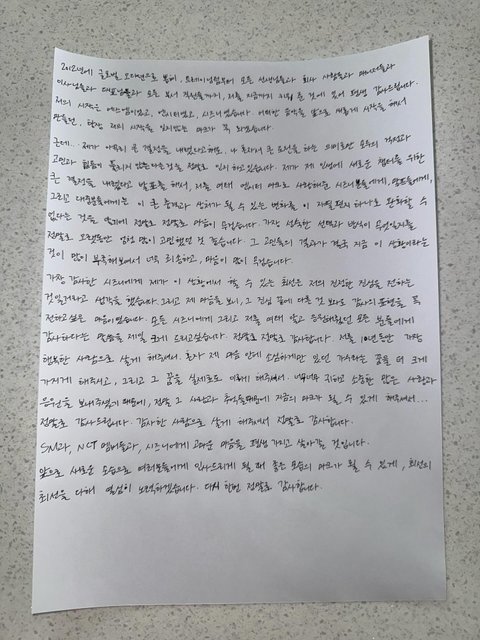 2012년에 글로벌 오디션으로 통해, 트레이닝팀부터 모든 선생님들과 회사 사람들과 매니저들과
이사님들과 대표님들과 모든 부서 직원들까지, 저를 지금까지 키워 준 것에 있어 평생 감사드립니다.
저의 시작은 에스엠이었고, 엔시티였고, 시즈니였습니다. 어떠한 음악을 앞으로 새롭게 시작을 해서
만들던, 항상 저의 시작을 잊지않는 마크가 꼭 되겠습니다.
근데.. 제가 아무리 큰 결정을 내렸다고해도, 나 혼자서 큰 도전을 하는 의미로만 모두의 걱정과
고민과 힘듦이 풀리지 않는다는것을 정말로 인지하고있습니다. 제가 제 인생에 새로운 챕터를 위한
큰 결정을 내렸다고 발표를 해서, 저를 여태 엔시티 마크로 사랑해준 시즈니분들에게, 팬분들에게,
그리고 대중분들에게는 이 큰 충격과 상처가 될 수 있는 변화를 이 자필편지 하나로 완화할 수
없다는 것을 알기에 정말로 정말로 마음이 무겁습니다. 가장 성숙한 선택과 방식이 무엇일지를
정말로 오랫동안 엄청 많이 고민했던 것 같습니다. 그 고민들의 결과가 결국 지금 이 상황이라는
것이 많이 부족해보여서 너무 죄송하고, 마음이 많이 무겁습니다.
가장 감사한 시즈니에게 제가 이 상황에서 할 수 있는 최선은 저의 진정한 진심을 전하는
것일거라고 생각을 했습니다. 그리고 제 마음을 보니, 그 진심 끝에 다른 것 보다도 감사의 표현을 꼭
전하고싶은 마음이었습니다. 모든 시즈니에게 그리고 저를 여태 알고 응원해줬던 모든 분들에게
감사하다는 말씀을 제일 크게 드리고싶습니다. 정말로 정말로 감사합니다. 저를 10년동안 가장
행복한 사람으로 살게 해주셔서. 혼자 제 마음 안에 소심하게만 있던 가수라는 꿈을 더 크게
가지게 해주시고, 그리고 그 꿈을 실제로도 이루게 해주셔서. 너무너무 귀하고 소중한 많은 사랑과
응원을 보내주셨기 때문에, 정말 그 사랑과 추억들때문에 지금의 마크가 될 수 있게 해주셔서...
정말로 감사드립니다. 감사한 사람으로 살게 해주셔서 정말로 감사합니다.
SM과, NCT 멤버들과, 시즈니에게 고마운 마음을 평생 가지고 살아갈 것입니다.
앞으로 새로운 모습으로 여러분들에게 인사드리게 될 때 좋은 모습의 마크가 될 수 있게, 최선의
최선을 다해 열심히 노력하겠습니다. 다시 한번 정말로 감사합니다.